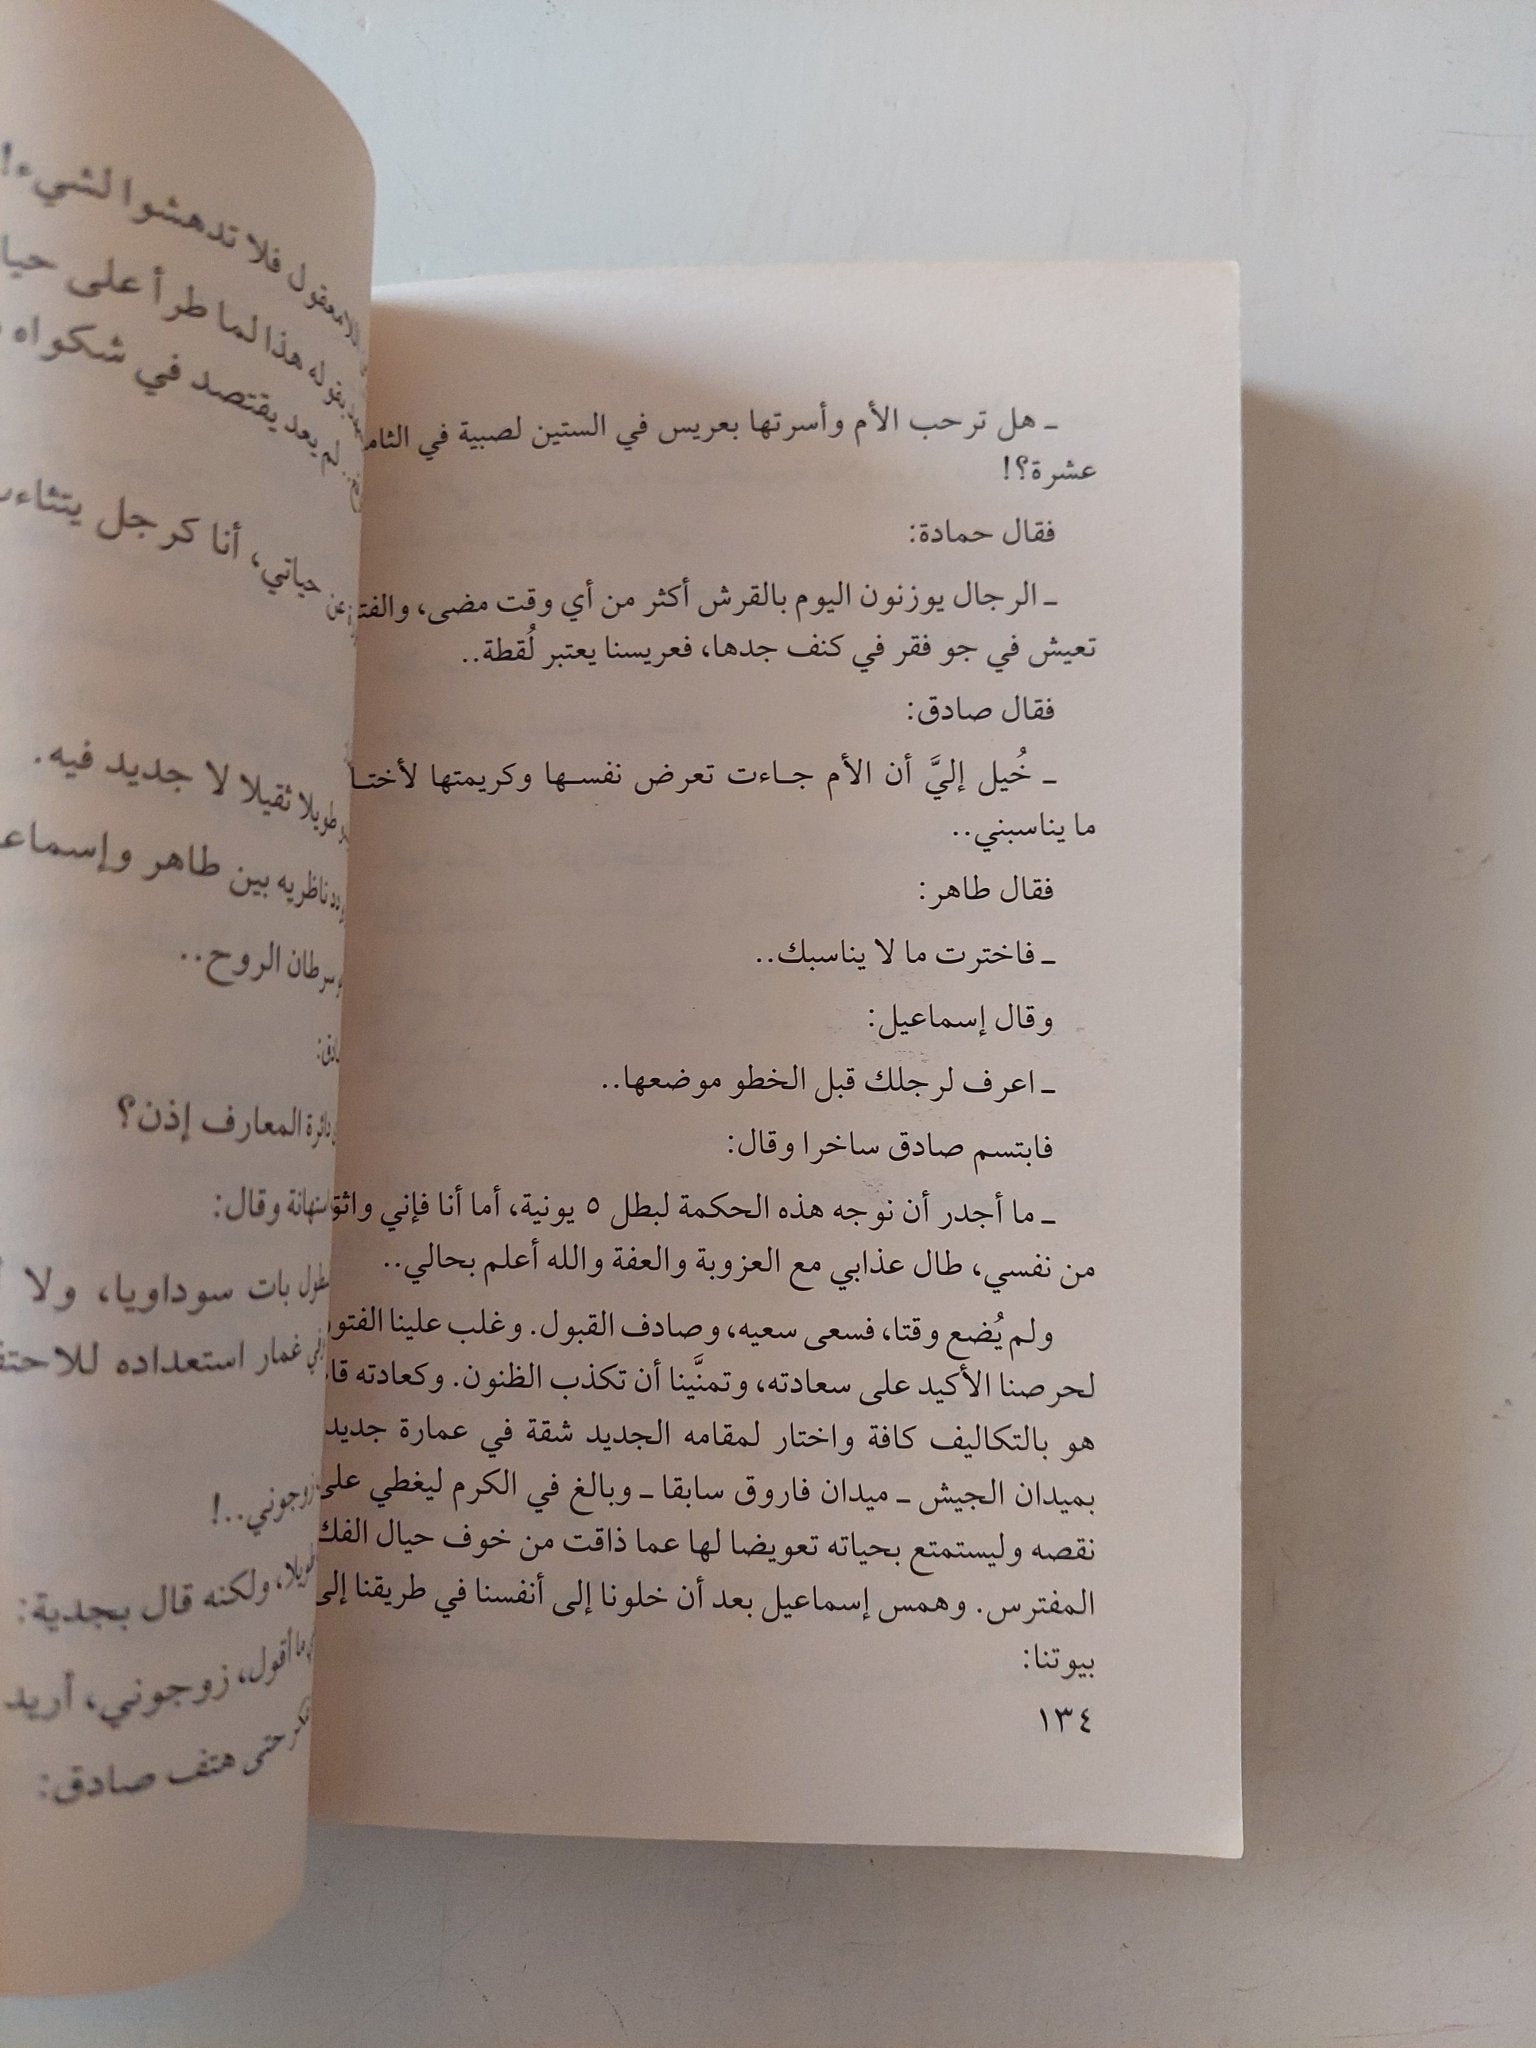 ـ هل ترحب الأم وأسرتها بعريس في الستين لصبية في الثام
عشرة؟!
فقال حمادة:
ـ الرجال يوزنون اليوم بالقرش أكثر من أي وقت مضى، والفت
تعيش في جو فقر في كنف جدها، فعريسنا يعتبر لُقطة..
فقال صادق:
ـ خُيل إليَّ أن الأم جاءت تعرض نفسها وكريمتها لأختا
ما يناسبني..
فقال طاهر:
ـ فاخترت ما لا يناسبك..
وقال إسماعيل:
ـ اعرف لرجلك قبل الخطو موضعها..
فابتسم صادق ساخرا وقال:
ـ ما أجدر أن نوجه هذه الحكمة لبطل ٥ يونية، أما أنا فإني واثق
من نفسي، طال عذابي مع العزوبة والعفة والله أعلم بحالي..
ولم يُضع وقتا، فسعى سعيه، وصادف القبول. وغلب علينا الفتور
لحرصنا الأكيد على سعادته، وتمنَّينا أن تكذب الظنون. وكعادته قا
هو بالتكاليف كافة واختار لمقامه الجديد شقة في عمارة جديد
بميدان الجيش ـ ميدان فاروق سابقا ـ وبالغ في الكرم ليغطي على
نقصه وليستمتع بحياته تعويضا لها عما ذاقت من خوف حيال الفك
المفترس. وهمس إسماعيل بعد أن خلونا إلى أنفسنا في طريقنا إلى
بيوتنا:
١٣٤
اللامعقول فلا تدهشوا لشيء!
بقوله هذا لما طرأ على حيا
لم يعد يقتصد في شكواه
عن حياتي، أنا كرجل يتثاءب
طويلا ثقيلا لا جديد فيه.
ناظريه بين طاهر وإسماع
سرطان الروح..
دائرة المعارف إذن؟
وقال:
بات سوداويا، ولا
في غمار استعداده للاحتف
زوجوني..!
طويلا، ولكنه قال بجدية:
ما أقول، زوجوني، أريد
حتى هتف صادق: